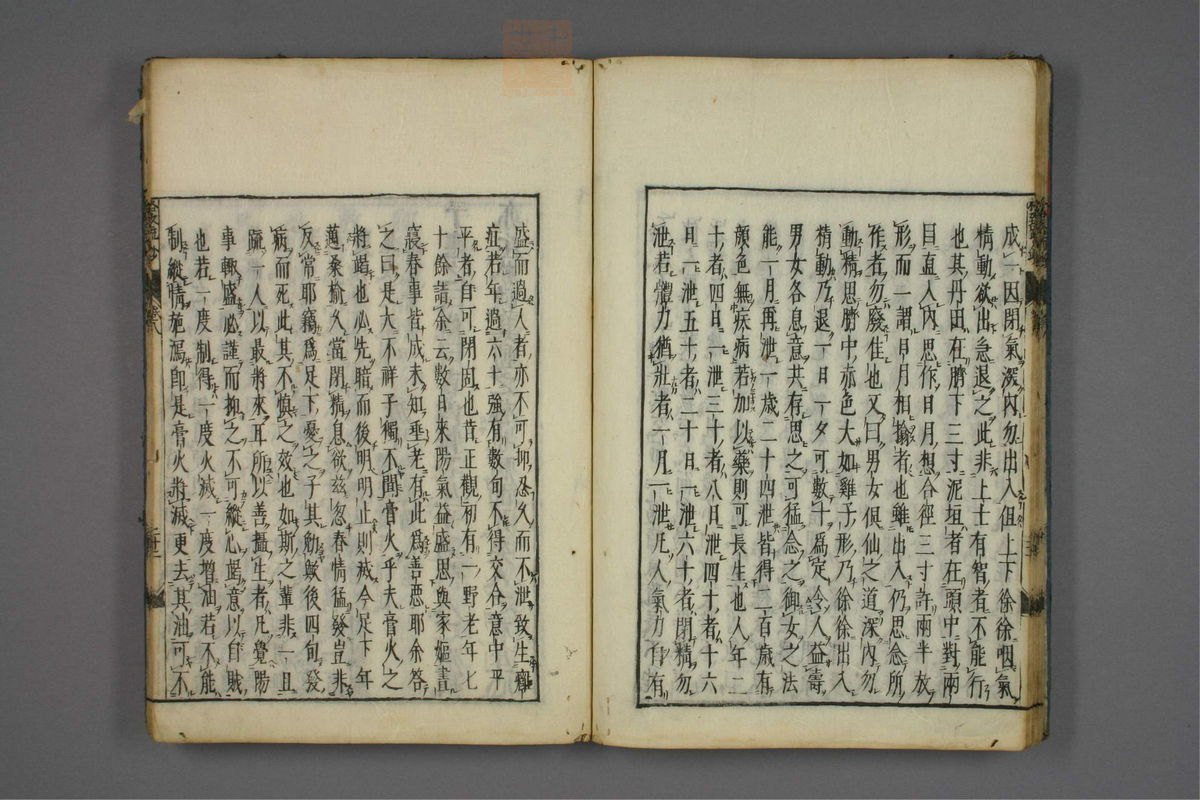 成一因閉氣深內勿出入但上下徐徐咽氣
情動欲出急退之此非上士有智者不能行
也其丹田在臍下三寸泥垣者在頭中對兩
目直入內思作日月想合徑三寸許兩半放
形而一謂日月相擒者也雖出入仍思念所
作者勿廢佳也又曰男女俱仙之道深內勿
動精思臍中赤色大如雞子形乃徐徐出入
精動乃退一日一夕可數十爲定令人益壽
男女各息意共存思之可猛念之御女之法
能一月再泄一歲二十四泄皆得二百歲有
顏色無疾病若加以藥則可長生也人年二
十者四日一泄三十者八月泄四十者十六
日一泄五十者二十日一泄六十者閉精勿
泄若體力猶壯者一月一泄凡人氣力自有
盛而過人者亦不可抑忍久而不泄致生癰
疽若年過六十強有數旬不得交合意中平
平者自可閉固也昔正觀初有一野老年七
十餘詣余云數日來陽氣益盛思與家嫗晝
寢春事皆成未知垂老有此爲善惡耶余答
之曰是大不祥子獨不聞膏火乎夫膏火之
將竭也必先暗而後明明止則滅今足下年
邁桑榆久當閉精息欲茲忽春情猛發豈非
反常耶竊爲足下憂之子其勉歟後四旬發
病而死此其不慎之效也如斯之輩非一且
疏一人以最將來耳所以善攝生者凡覺陽
事輒盛必謹而抑之不可縱心竭意以自賊
也若一度制得一度火滅一度增油若不能
制縱情施瀉卽是膏火將滅更去其油可不